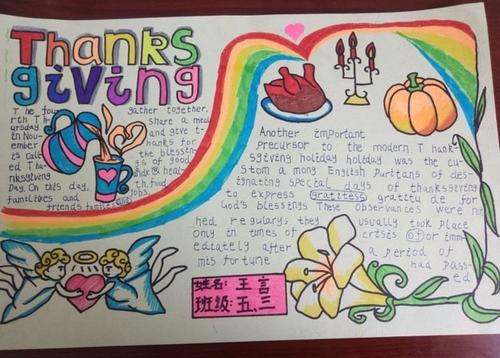 Thanks
giving
The fou
rth Th
ursday
in Nov-
ember
is call-
ed Tha-
nksgiving
Day. On this day,
families and
friends
gather together.
share a meal
and give t-
hanks for
the blessin-
gs of good
& heal-
th, food
Another important
precursor to the modern Thank-
sgiving holiday holiday was the cu-
stom a mong English Puritans of des-
ignating special days of thanksgiving
to express Gratitess gratitude for
God's blessings These observances were not
hed regulary; they usually took place
only in times of crisis of or imm-
ediately after a period of
mis fortune had pass-
ed.
姓名: 王言
班级: 五、三